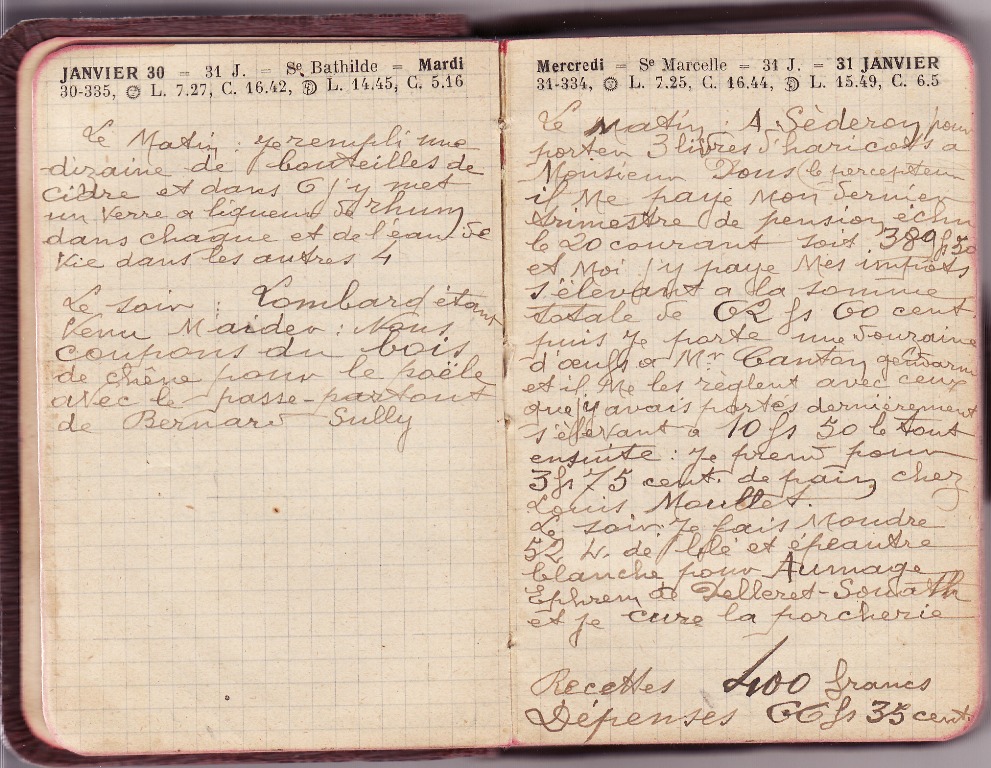 JANVIER 30 = 31 J. = Se Bathilde = Mardi
30-335, L. 7.27, C. 16.42, L. 14.45, C. 5.16
Le Matin : je rempli une
dizaine de bouteilles de
cidre et dans 6 j'y met
un verre a liqueur de rhum
dans chaque et de l'eau de
vie dans les autres 4
Le soir : Lombard étant
venu M'aider : Nous
coupons du bois
de chêne pour le poële
avec le passe-partout
de Bernard Sully
Mercredi = Se Marcelle = 31 J. = 31 JANVIER
31-334, L. 7.25, C. 16.44, L. 15.49, C. 6.5
Le Matin : A Sèderon pour
porter 3 livres d'haricots a
Monsieur Dous (le percepteur
il Me paye Mon dernier
trimestre de pension échu
le 20 courant soit 389 fs 50
et Moi j'y paye Mes impôts
s'élevant a la somme
totale de 62 fs 60 cent
puis je porte une douzaine
d'œufs a Mr Canton gendarme
et il Me les règlent avec ceux
que j'y avais portés dernièrement
s'élevant a 10 fs 50 le tout
ensuite : je prend pour
3 fs 75 cent. de pain chez
Louis Moullet.
Le soir. Je fais Moudre
52 k. de blé et épeautre
blanche pour Aumage
Ephrem de Delleret-Souath
et je cure la porcherie
Recettes 400 francs
Dépenses 66 fs 35 cent.